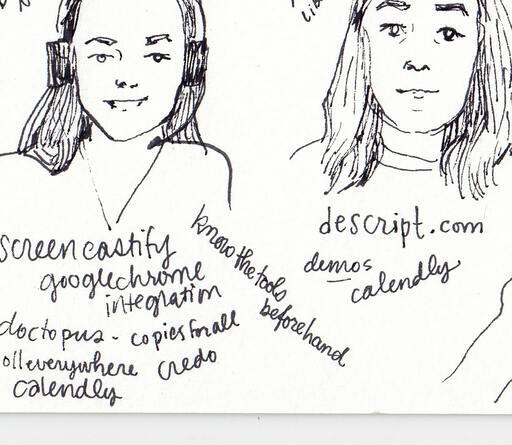 screencastify
googlechrome
integration
doctopus - copies for all
olleverywhere credo
calendly
know the tools
beforehand
descript.com
demos
calendly